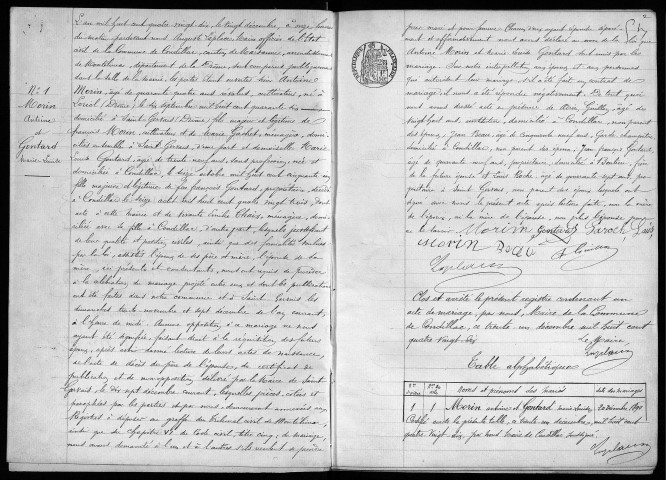 N° 1
Morin
Antoine
et
Gontard
Marie Émilie
L'an mil huit cent quatre vingt dix, le vingt décembre, à onze heures
du matin, pardevant nous Auguste Lagier, Maire officier de l'État
civil de la Commune de Condillac, canton de Marsanne, arrondissement
de Montélimar, département de la Drôme, sont comparus publiquement
dans la salle de la mairie, les portes étant ouvertes, sieur Antoine
Morin, âgé de quarante quatre ans révolus, cultivateur, né à
Loriol (Drôme) le septembre mil huit cent quarante six
domicilié à Saint Gervais (Drôme) fils majeur et légitime de
François Morin, cultivateur et de Marie ménagère, domi-
ciliés ensemble à Saint Gervais, d'une part et demoiselle Marie
Gontard, âgée de trente neuf ans, sans profession, née et
domiciliée à Condillac, le seize octobre mil huit cent cinquante un
fille majeure et légitime de feu François Gontard, propriétaire, décédé
à Condillac le seize août mil huit cent quatre vingt trois, dont
acte à cette mairie et de vivante ménagère, domi-
ciliée avec sa fille à Condillac, d'autre part, lesquels justifiant
de leur qualité et position civiles, ainsi que des formalités voulues
par la loi, assistés l'époux de ses père et mère, l'épouse de sa
mère, ici présents et consentants, nous ont requis de procéder
à la célébration du mariage projeté entre eux, et dont les publications
ont été faites dans notre commune et à Saint Gervais les
dimanches trente novembre et sept décembre de l'an courant,
à l'heure de midi. Aucune opposition, à ce mariage ne nous
ayant été signifiée, faisant droit à la réquisition des futurs
époux, après avoir donné lecture de leurs actes de naissance,
de l'acte de décès du père de l'épouse, du certificat de
publication et de non opposition, délivré par le Maire de Saint
Gervais, le dix sept décembre courant, lesquelles pièces, cotées et
paraphées par les parties et par nous demeureront annexées au
Registre à déposer au greffe du Tribunal civil de Montélimar,
ainsi que du chapitre VI du Code civil, titre cinq, du mariage,
nous avons demandé à l'un et à l'autre s'ils veulent se prendre
2
RÉPUBLIQUE FRANÇAISE
pour mari et pour femme. Chacun d'eux ayant répondu séparé-
ment et affirmativement nous avons déclaré au nom de la loi que
Antoine Morin et Marie Gontard sont unis par le
mariage. Sur notre interpellation les époux et les personnes
qui autorisent leur mariage, s'il a été fait un contrat de
mariage, ils nous ont répondu négativement. De tout quoi
nous avons dressé acte en présence de âgé de
vingt huit ans, instituteur, domicilié à Condillac, non parent
des époux, Jean âgé de cinquante neuf ans, Garde champêtre,
domicilié à Condillac, non parent des époux, Jean François Gontard,
âgé de quarante neuf ans, propriétaire, domicilié à frère
de la future épouse et Louis âgé de quarante sept ans pro-
priétaire à Saint Gervais, non parent des époux, lesquels ont
signé avec nous le présent acte après lecture faite, non la mère
de l'époux, ni la mère de l'épouse, non plus l'épouse pour
ne le savoir.
Morin Gontard
Morin
Clos et arrêté le présent registre contenant un
acte de mariage, par nous, Maire de la Commune
de Condillac, ce trente un décembre mil huit cent
quatre vingt dix
Le Maire
Table alphabétique
noms et prénoms des mariés
date des mariages
1
1
Morin Antoine et Gontard Marie
20 décembre 1890
arrêté la présente table, ce trente un décembre, mil huit cent
quatre vingt dix, par nous Maire de Condillac soussigné.